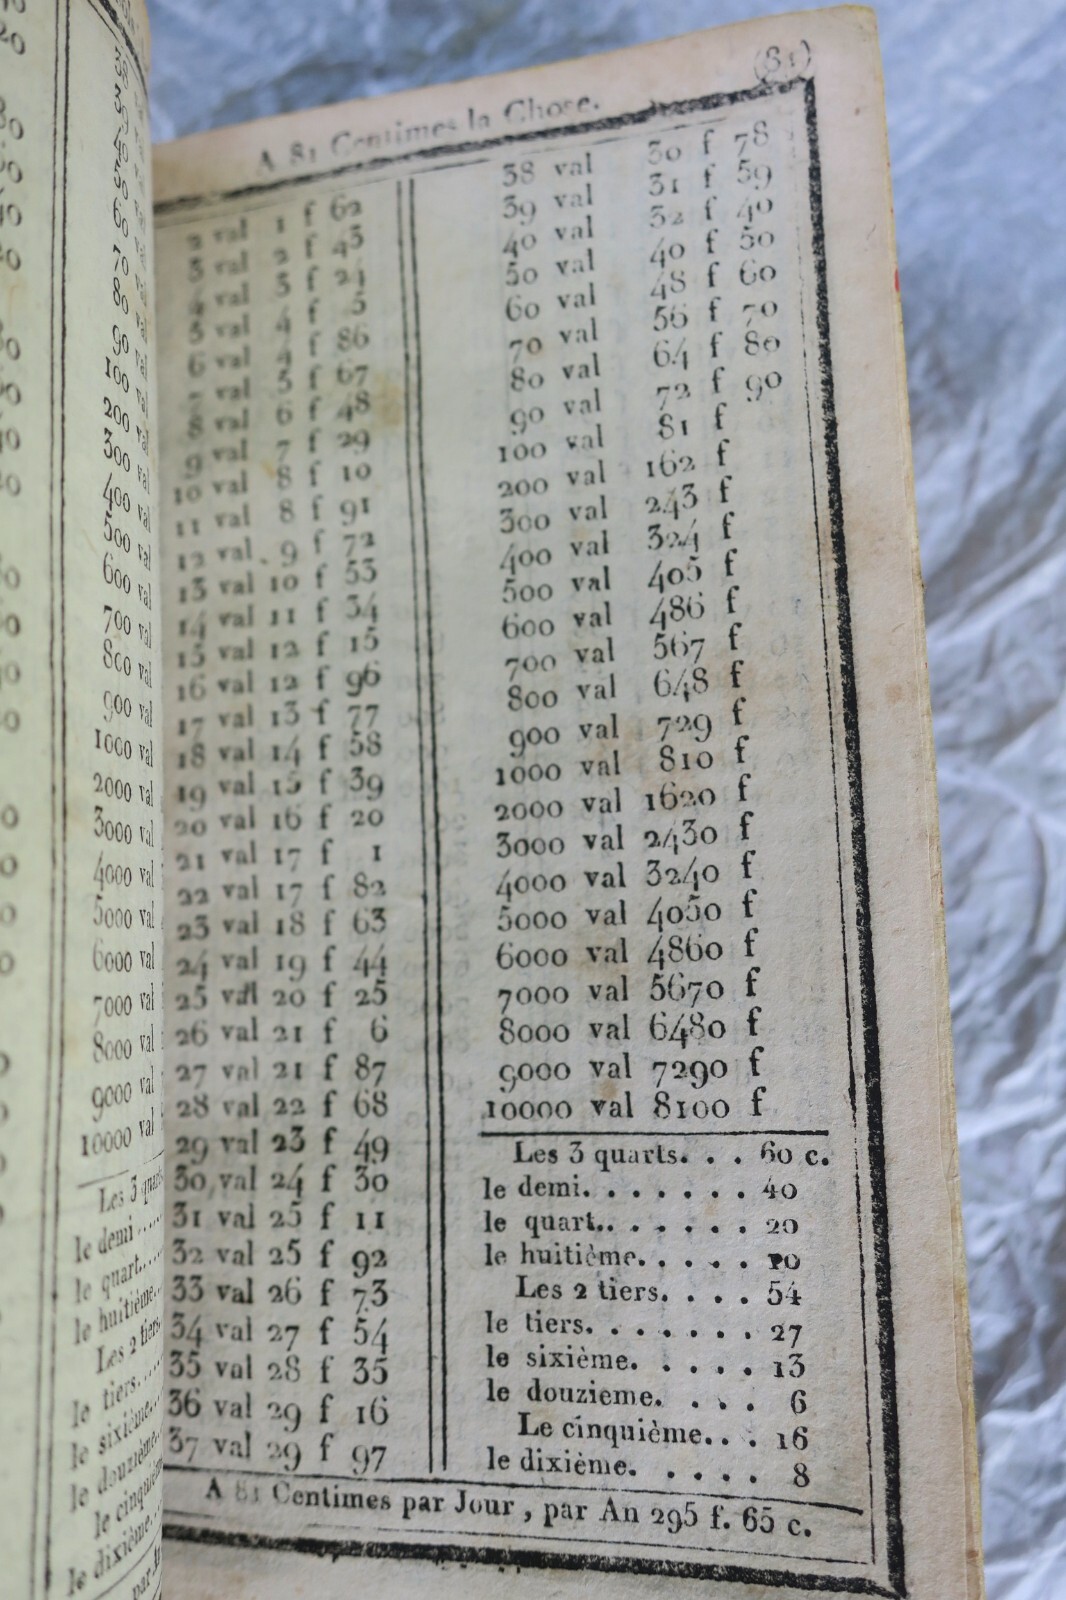 (81)
A 81 Centimes la Chose.
2 val 1 f 62
3 val 2 f 43
4 val 3 f 24
5 val 4 f 5
6 val 4 f 86
7 val 5 f 67
8 val 6 f 48
9 val 7 f 29
10 val 8 f 10
11 val 8 f 91
12 val 9 f 72
13 val 10 f 53
14 val 11 f 34
15 val 12 f 15
16 val 12 f 96
17 val 13 f 77
18 val 14 f 58
19 val 15 f 39
20 val 16 f 20
21 val 17 f 1
22 val 17 f 82
23 val 18 f 63
24 val 19 f 44
25 val 20 f 25
26 val 21 f 6
27 val 21 f 87
28 val 22 f 68
29 val 23 f 49
30 val 24 f 30
31 val 25 f 11
32 val 25 f 92
33 val 26 f 73
34 val 27 f 54
35 val 28 f 35
36 val 29 f 16
37 val 29 f 97
38 val 30 f 78
39 val 31 f 59
40 val 32 f 40
50 val 40 f 50
60 val 48 f 60
70 val 56 f 70
80 val 64 f 80
90 val 72 f 90
100 val 81 f
200 val 162 f
300 val 243 f
400 val 324 f
500 val 405 f
600 val 486 f
700 val 567 f
800 val 648 f
900 val 729 f
1000 val 810 f
2000 val 1620 f
3000 val 2430 f
4000 val 3240 f
5000 val 4050 f
6000 val 4860 f
7000 val 5670 f
8000 val 6480 f
9000 val 7290 f
10000 val 8100 f
Les 3 quarts. . . 60 c.
le demi. . . . . . . 40
le quart.. . . . . . 20
le huitième. . . . . 10
Les 2 tiers. . . . 54
le tiers. . . . . . . 27
le sixième. . . . . 13
le douzieme. . . . 6
Le cinquième.. . 16
le dixième. . . . . 8
A 81 Centimes par Jour, par An 295 f. 65 c.
70 val
80 val
90 val
100 val
200 val
300 val
400 val
500 val
600 val
700 val
800 val
900 val
1000 val
2000 val
3000 val
4000 val
5000 val
6000 val
7000 val
8000 val
9000 val
10000 val
Les 3 quarts
le demi.....
le quart....
le huitième...
Les 2 tiers.
le tiers....
le sixième...
le douzième..
le cinquième
le dixième...